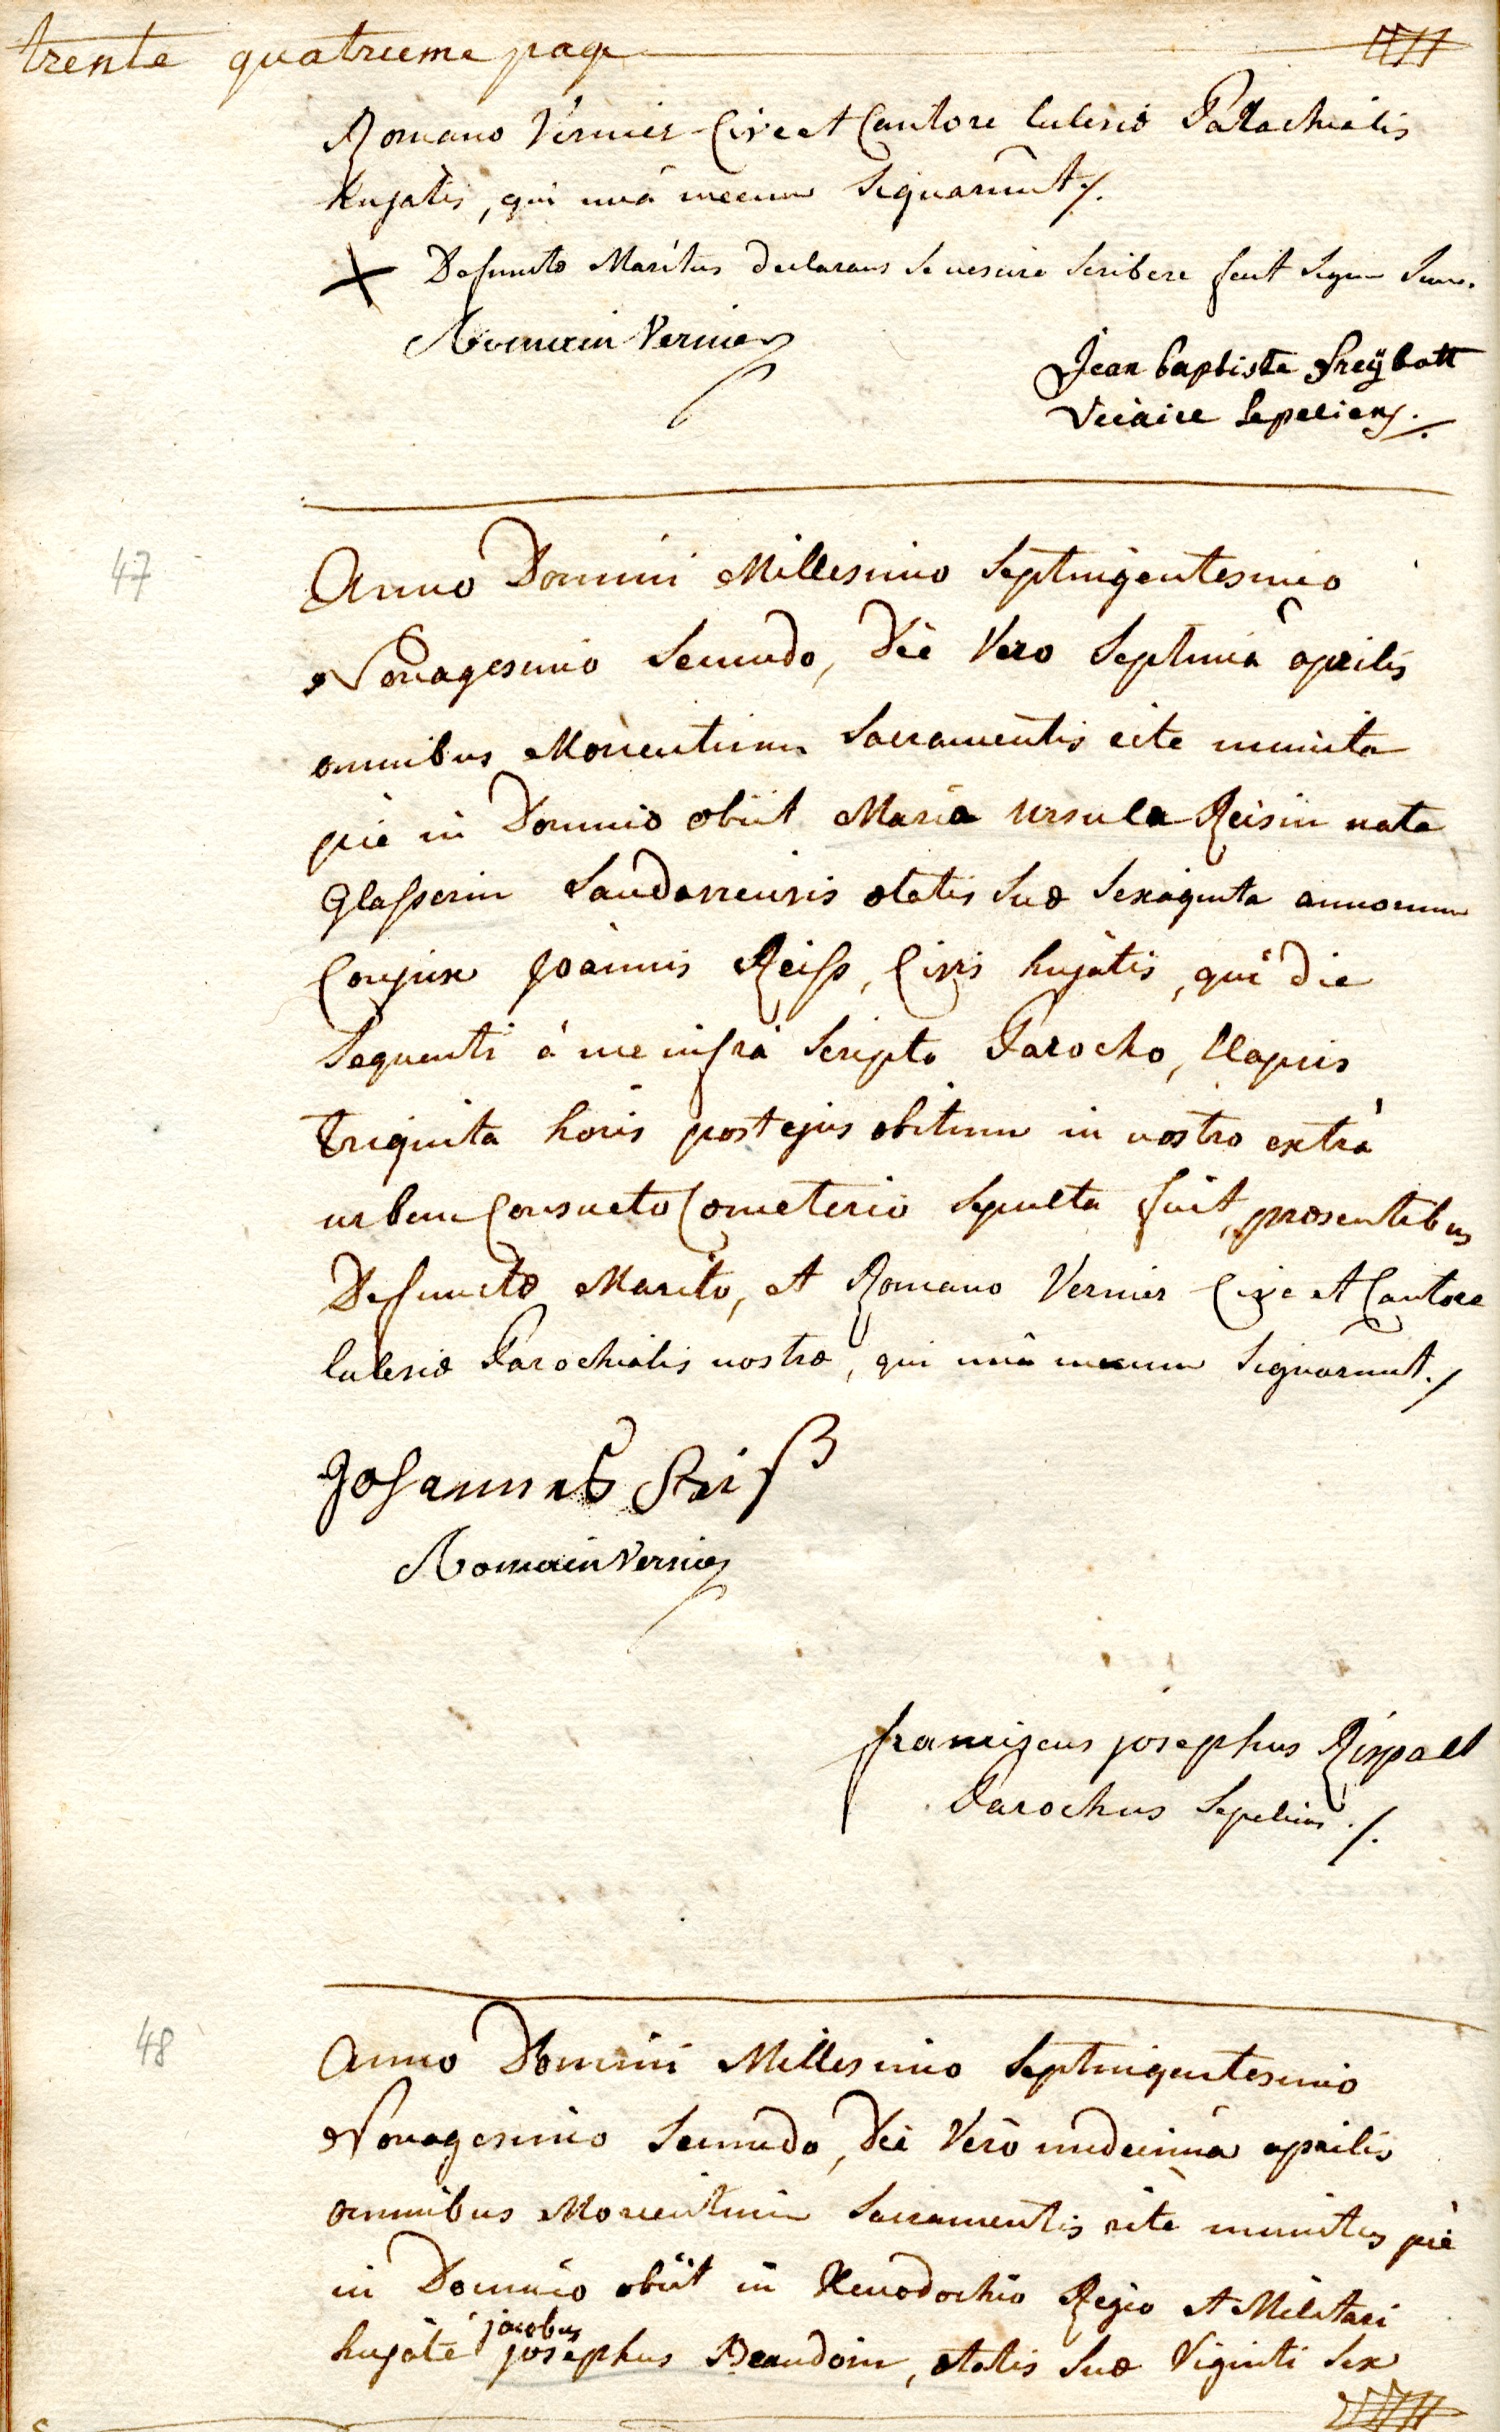 trente quatrieme page
Romano Vernier Cive et Cantore Eclesiæ Parachialis
hujatis, qui unà mecum Signarunt ./.
Defunctæ Maritus declarans se nescire scribere fecit signum suum.
Romain Vernier
Jean baptiste freÿbott
Vicaire Sepeliens ./.
47
Anno Domini Millesimo Septingentesimo
Nonagesimo Secundo, Die Vero Septimâ aprilis
omnibus Morientium Sacramentis rite munita
piè in Domino obiit Maria Ursula Reisin nata
Glasserin Landavensis ætatis suæ sexaginta annorum
Conjux Joannis Reiss, Civis hujatis, quæ die
Sequenti à me infrà Scripto Parocho, Elapsis
triginta horis post ejus obitum in nostro extrà
urbem Consueto Cometerio sepulta fuit, præsentibus
Defunctæ Marito, et Romano Vernier Cive et Cantore
Eclesiæ Parochialis nostræ, qui unà mecum Signarunt ./
Johannes Reiß
Romain Vernier
franciscus josephus Rispalt
Parochus Sepeliens ./.
48
Anno Domini Millesimo Septingentesimo
Nonagesimo Secundo, Die Verò undecimâ aprilis
omnibus Morientium Sacramentis ritè munitus piè
in Domino obiit in Xenodochio Regio et Militari
jacobus
hujate josephus Beaudoin, ætatis suæ Viginti Sex